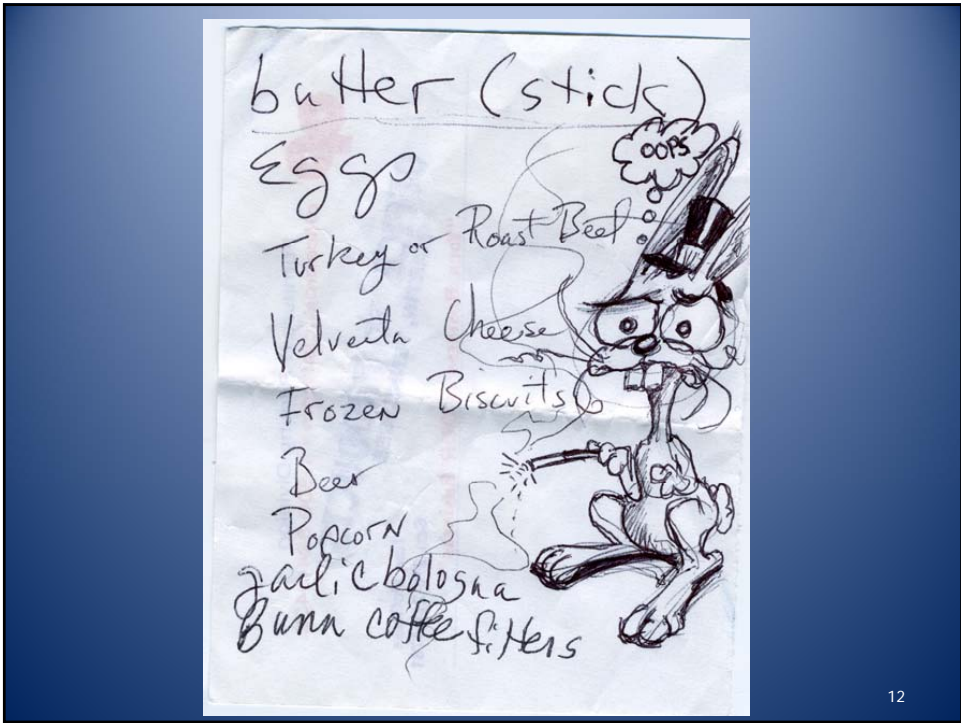 butter (stick)
OOPS
Eggs
Turkey or Roast Beef
Velveeta Cheese
Frozen Biscuits
Beer
Popcorn
garlic bologna
Bunn coffee filters
12